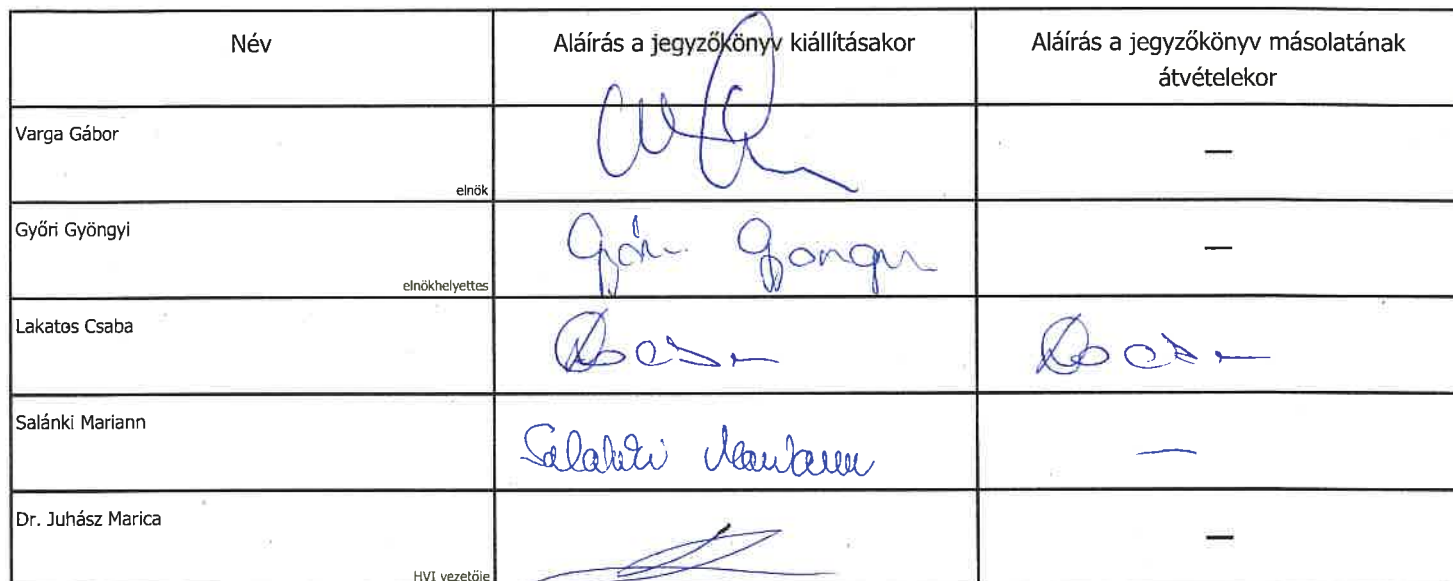 Név
Aláírás a jegyzőkönyv kiállításakor
Aláírás a jegyzőkönyv másolatának
átvételekor
Varga Gábor
elnök
—
Győri Gyöngyi
elnökhelyettes
—
Lakatos Csaba
Salánki Mariann
Salánki Mariann
—
Dr. Juhász Marica
HVI vezetője
—